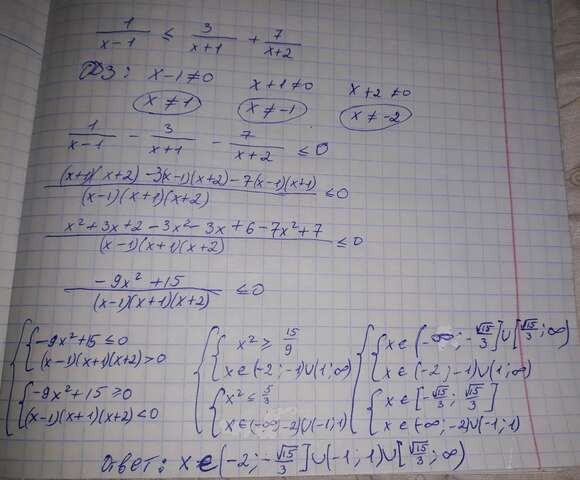 1/(x-1) ≤ 3/(x+1) + 7/(x+2)
ОДЗ: x-1≠0 x+1≠0 x+2≠0
x≠1 x≠-1 x≠-2
1/(x-1) - 3/(x+1) - 7/(x+2) ≤0
((x+1)(x+2) -3(x-1)(x+2) -7(x-1)(x+1))/((x-1)(x+1)(x+2)) ≤0
(x²+3x+2-3x²-3x+6-7x²+7)/((x-1)(x+1)(x+2)) ≤0
(-9x²+15)/((x-1)(x+1)(x+2)) ≤0
{-9x²+15≤0
(x-1)(x+1)(x+2)>0
{-9x²+15≥0
(x-1)(x+1)(x+2)<0
{x² ≥ 15/9
x∈(-2;-1)∪(1;∞)
{x² ≤ 5/3
x∈(-∞;-2)∪(-1;1)
{x∈(-∞;-√15/3]∪[√15/3;∞)
x∈(-2;-1)∪(1;∞)
{x∈[-√15/3;√15/3]
x∈(-∞;-2)∪(-1;1)
Ответ: x∈(-2;-√15/3]∪(-1;1)∪[√15/3;∞)